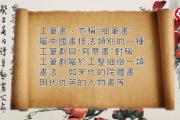 工筆畫、亦稱"細筆畫"
屬中國畫技法類別的一種
工筆劃與"寫意畫"對稱
工筆劃屬於工整細緻一類
畫法、如宋代的院體畫
明代仇英的人物畫等